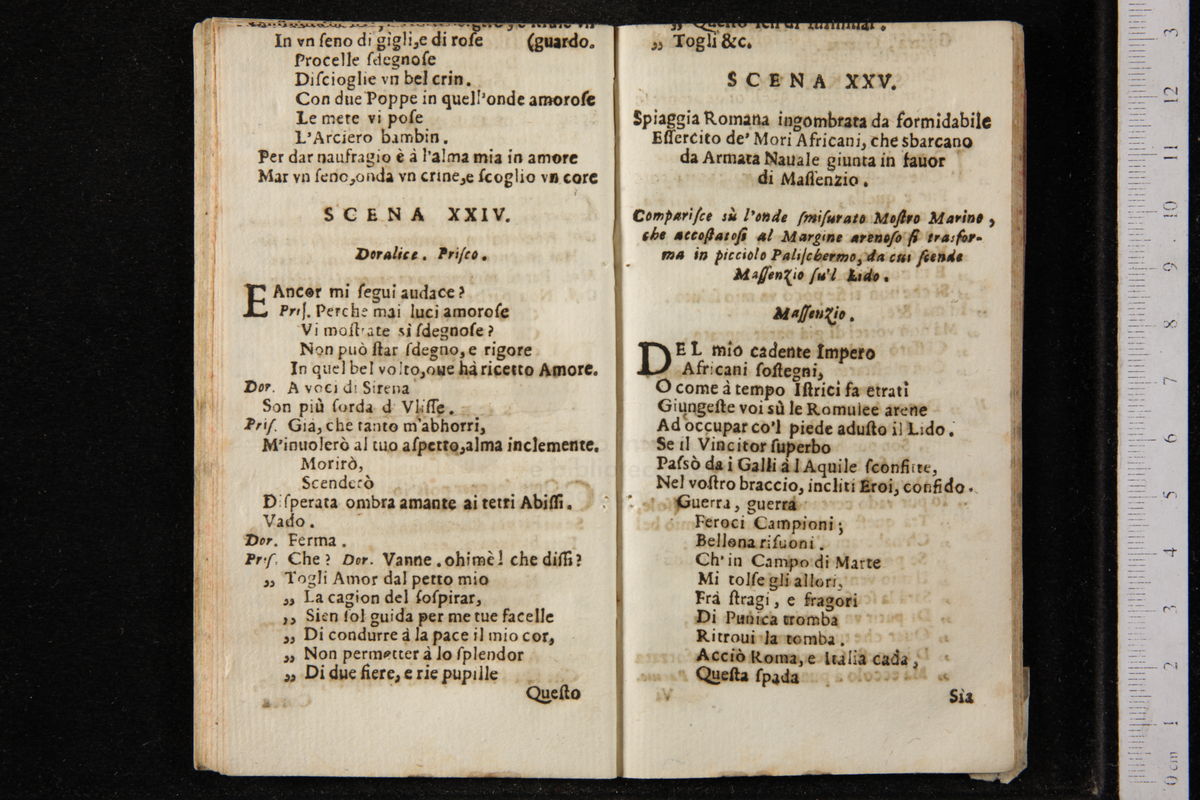 In vn ſeno di gigli,e di roſe (guardo.
Procelle ſdegnoſe
Diſcioglie vn bel crin.
Con due Poppe in quell'onde amoroſe
Le mete vi poſe
L'Arciero bambin.
Per dar naufragio è à l'alma mia in amore
Mar vn ſeno,onda vn crine,e ſcoglio vn core
SCENA XXIV.
Doralice. Priſco.
E Ancor mi ſegui audace?
Priſ. Perche mai luci amoroſe
Vi moſtrate sì ſdegnoſe?
Non può ſtar ſdegno, e rigore
In quel bel volto,oue hà ricetto Amore.
Dor. A voci di Sirena
Son più ſorda d Vliſſe.
Priſ. Già, che tanto m'abhorri,
M'inuolerò al tuo aſpetto,alma inclemente.
Morirò,
Scenderò
Diſperata ombra amante ai tetri Abiſſi.
Vado.
Dor. Ferma.
Priſ. Che? Dor. Vanne. ohimè! che diſſi?
„ Togli Amor dal petto mio
„ La cagion del ſoſpirar,
„ Sien ſol guida per me tue facelle
„ Di condurre à la pace il mio cor,
„ Non permetter à lo ſplendor
„ Di due fiere, e rie pupille
Queſto
„ Togli &c.
SCENA XXV.
Spiaggia Romana ingombrata da formidabile
Eſſercito de' Mori Africani, che sbarcano
da Armata Nauale giunta in fauor
di Maſſenzio.
Compariſce sù l'onde ſmiſurato Moſtro Marino,
che accoſtatoſi al Margine arenoſo ſi trasfor-
ma in picciolo Paliſchermo, da cui ſcende
Maſſenzio ſu'l Lido.
Maſſenzio.
DEL mio cadente Impero
Africani ſoſtegni,
O come à tempo Iſtrici fa etrati
Giungeſte voi sù le Romulee arene
Ad occupar co'l piede aduſto il Lido.
Se il Vincitor ſuperbo
Paſsò da i Galli à l Aquile ſconfitte,
Nel voſtro braccio, incliti Eroi, confido.
Guerra, guerra
Feroci Campioni;
Bellona riſuoni.
Ch' in Campo di Marte
Mi tolſe gli allori,
Frà ſtragi, e fragori
Di Punica tromba
Ritroui la tomba.
Acciò Roma, e Italia cada,
Queſta ſpada
Sia